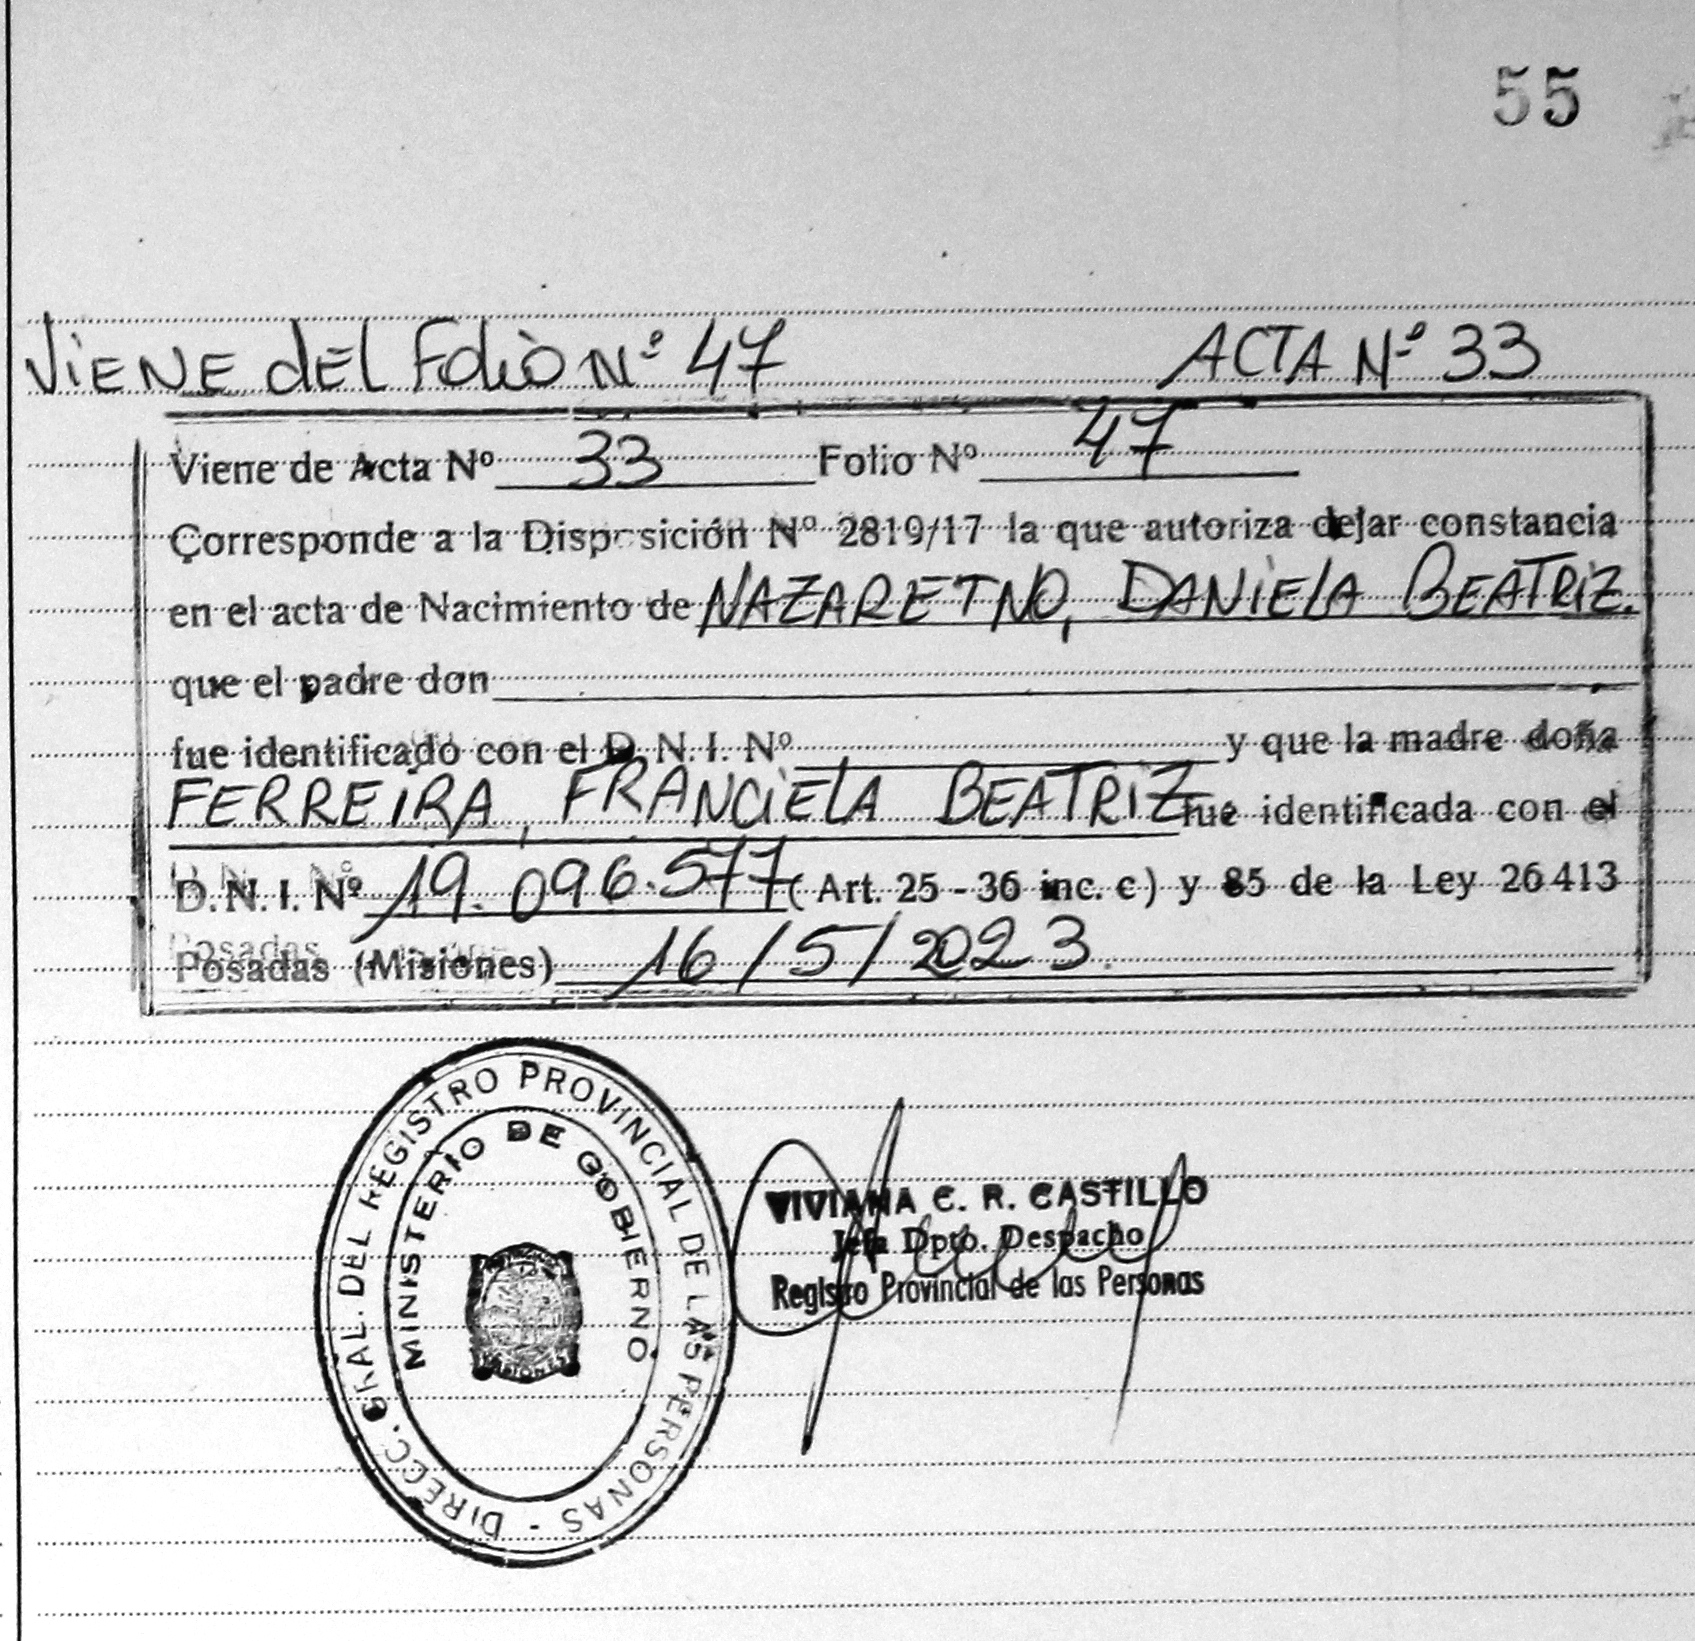 55
Viene del Folio Nº 47 ACTA Nº 33
Viene de Acta Nº 33 Folio Nº 47
Corresponde a la Disposición Nº 2819/17 la que autoriza dejar constancia
en el acta de Nacimiento de NAZARETNO, DANIELA BEATRIZ.
que el padre don
fue identificado con el D.N.I. Nº y que la madre doña
FERREIRA, FRANCIELA BEATRIZ fue identificada con el
D.N.I. Nº 19.096.577 (Art. 25 - 36 inc. c) y 85 de la Ley 26413
Posadas (Misiones) 16/5/2023.
DIRECC. GRAL. DEL REGISTRO PROVINCIAL DE LAS PERSONAS -
MINISTERIO DE GOBIERNO
VIVIANA C. R. CASTILLO
Jefa Dpto. Despacho
Registro Provincial de las Personas